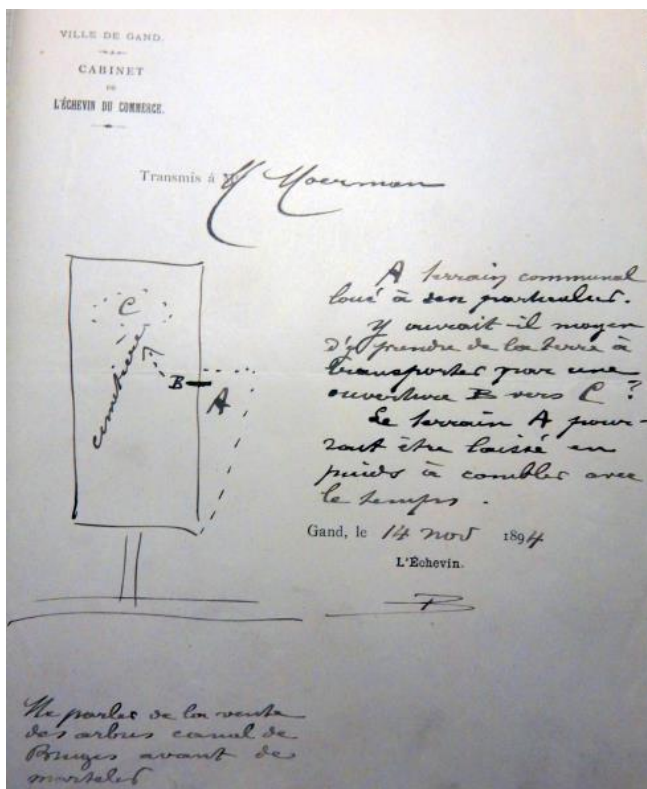 VILLE DE GAND.
CABINET
DE
L'ÉCHEVIN DU COMMERCE.
Transmis à M Moerman
A terrain communal
loué à des particulier.
Y aurait-il moyen
d'y prendre de la terre à
transporter par une
ouverture B vers C ?
Le terrain A pour-
rait être laissé en
puids à combler avec
le temps.
C
cimetière
B
A
Gand, le 14 nov 1894
L'Échevin.
B
Me parler de la vente
des arbres canal de
Bruges avant de
marteler